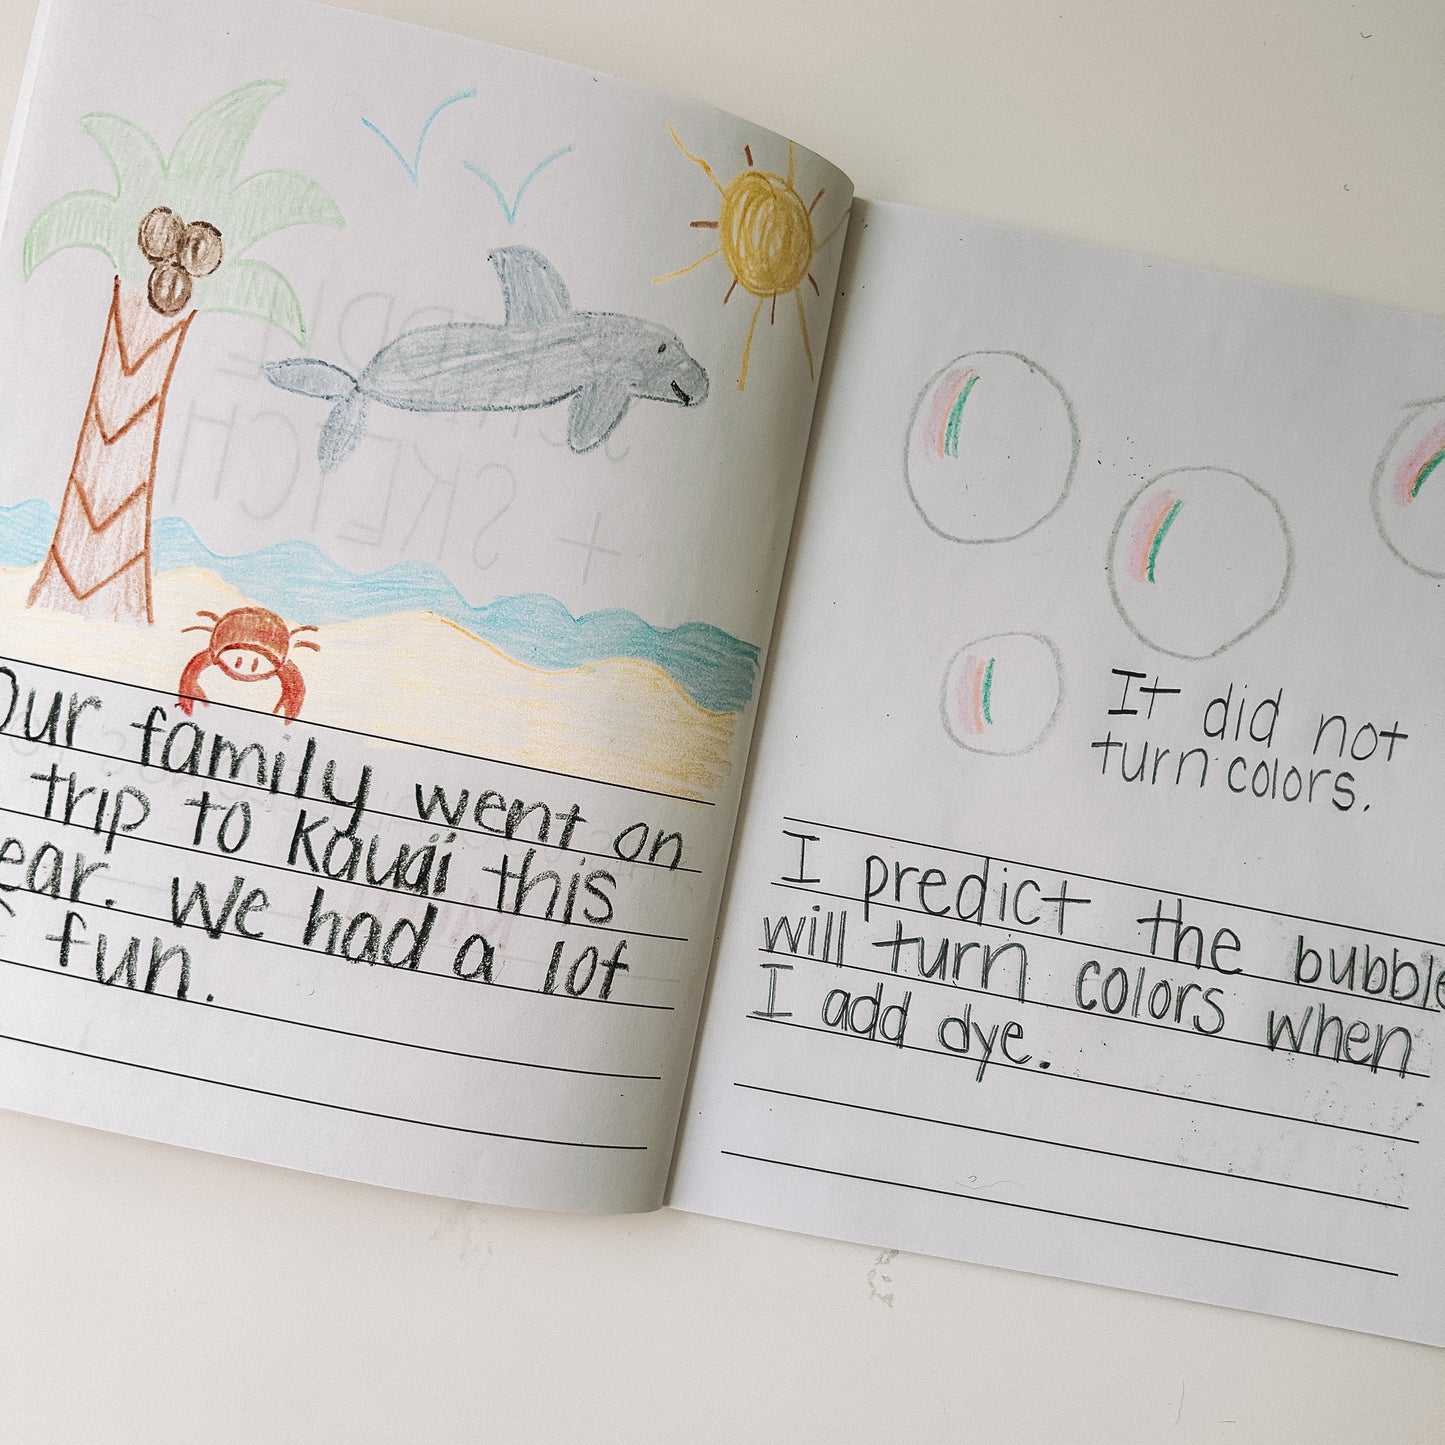 Our family went on
trip to Kauai this
ear. We had a lot
fun.
It did not
turn colors.
I predict the bubble
will turn colors when
I add dye.